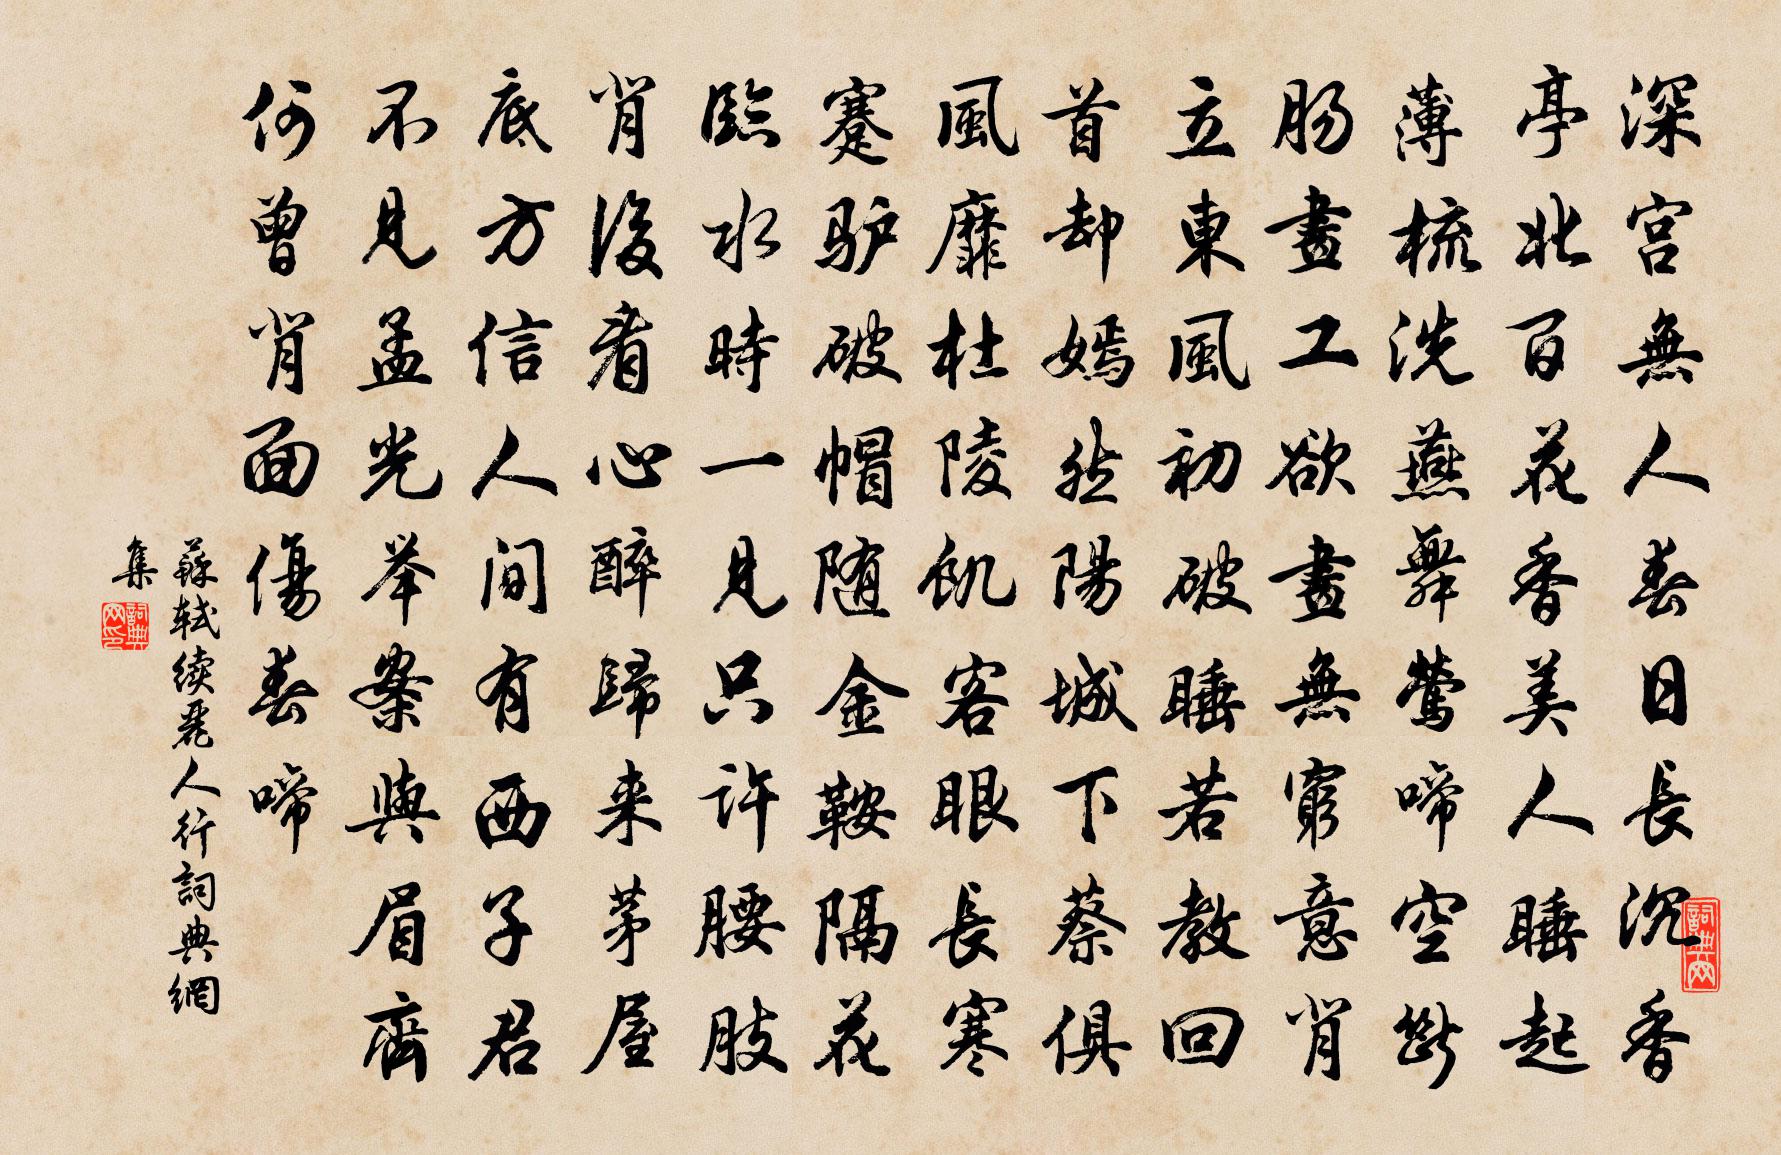 深宫無人春日長沉香
亭北百花香美人睡起
薄梳洗燕舞鶯啼空斷
腸畫工欲畫無窮意背
立東風初破睡若教回
首却嫣然陽城下蔡俱
風靡杜陵飢客眼長寒
蹇驴破帽随金鞍隔花
臨水時一見只許腰肢
背後看心醉歸来茅屋
底方信人间有西子君
不見孟光举案與眉齊
何曾背面傷春啼
蘇轼续麗人行詞典網
集
詞典网印
詞典网